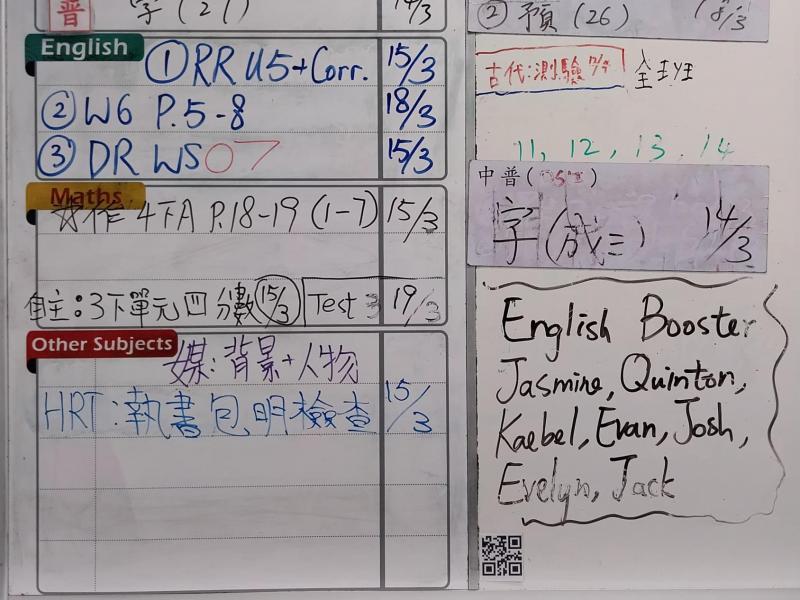 普 字(27) 14/3
English
① RR U5+Corr. 15/3
② W6 P.5-8 18/3
③ DR WS 07 15/3
Maths
☆作 4下A P.18-19 (1-7) 15/3
自主:3下單元四 分數 15/3 Test 3 19/3
Other Subjects
媒:背景+人物
HRT:執書包明檢查 15/3
② 預(26) 18/3
古代:測驗
全班
11, 12, 13, 14
中普( )
字(成三) 14/3
English Booster
Jasmine, Quinton,
Kaebel, Evan, Josh,
Evelyn, Jack